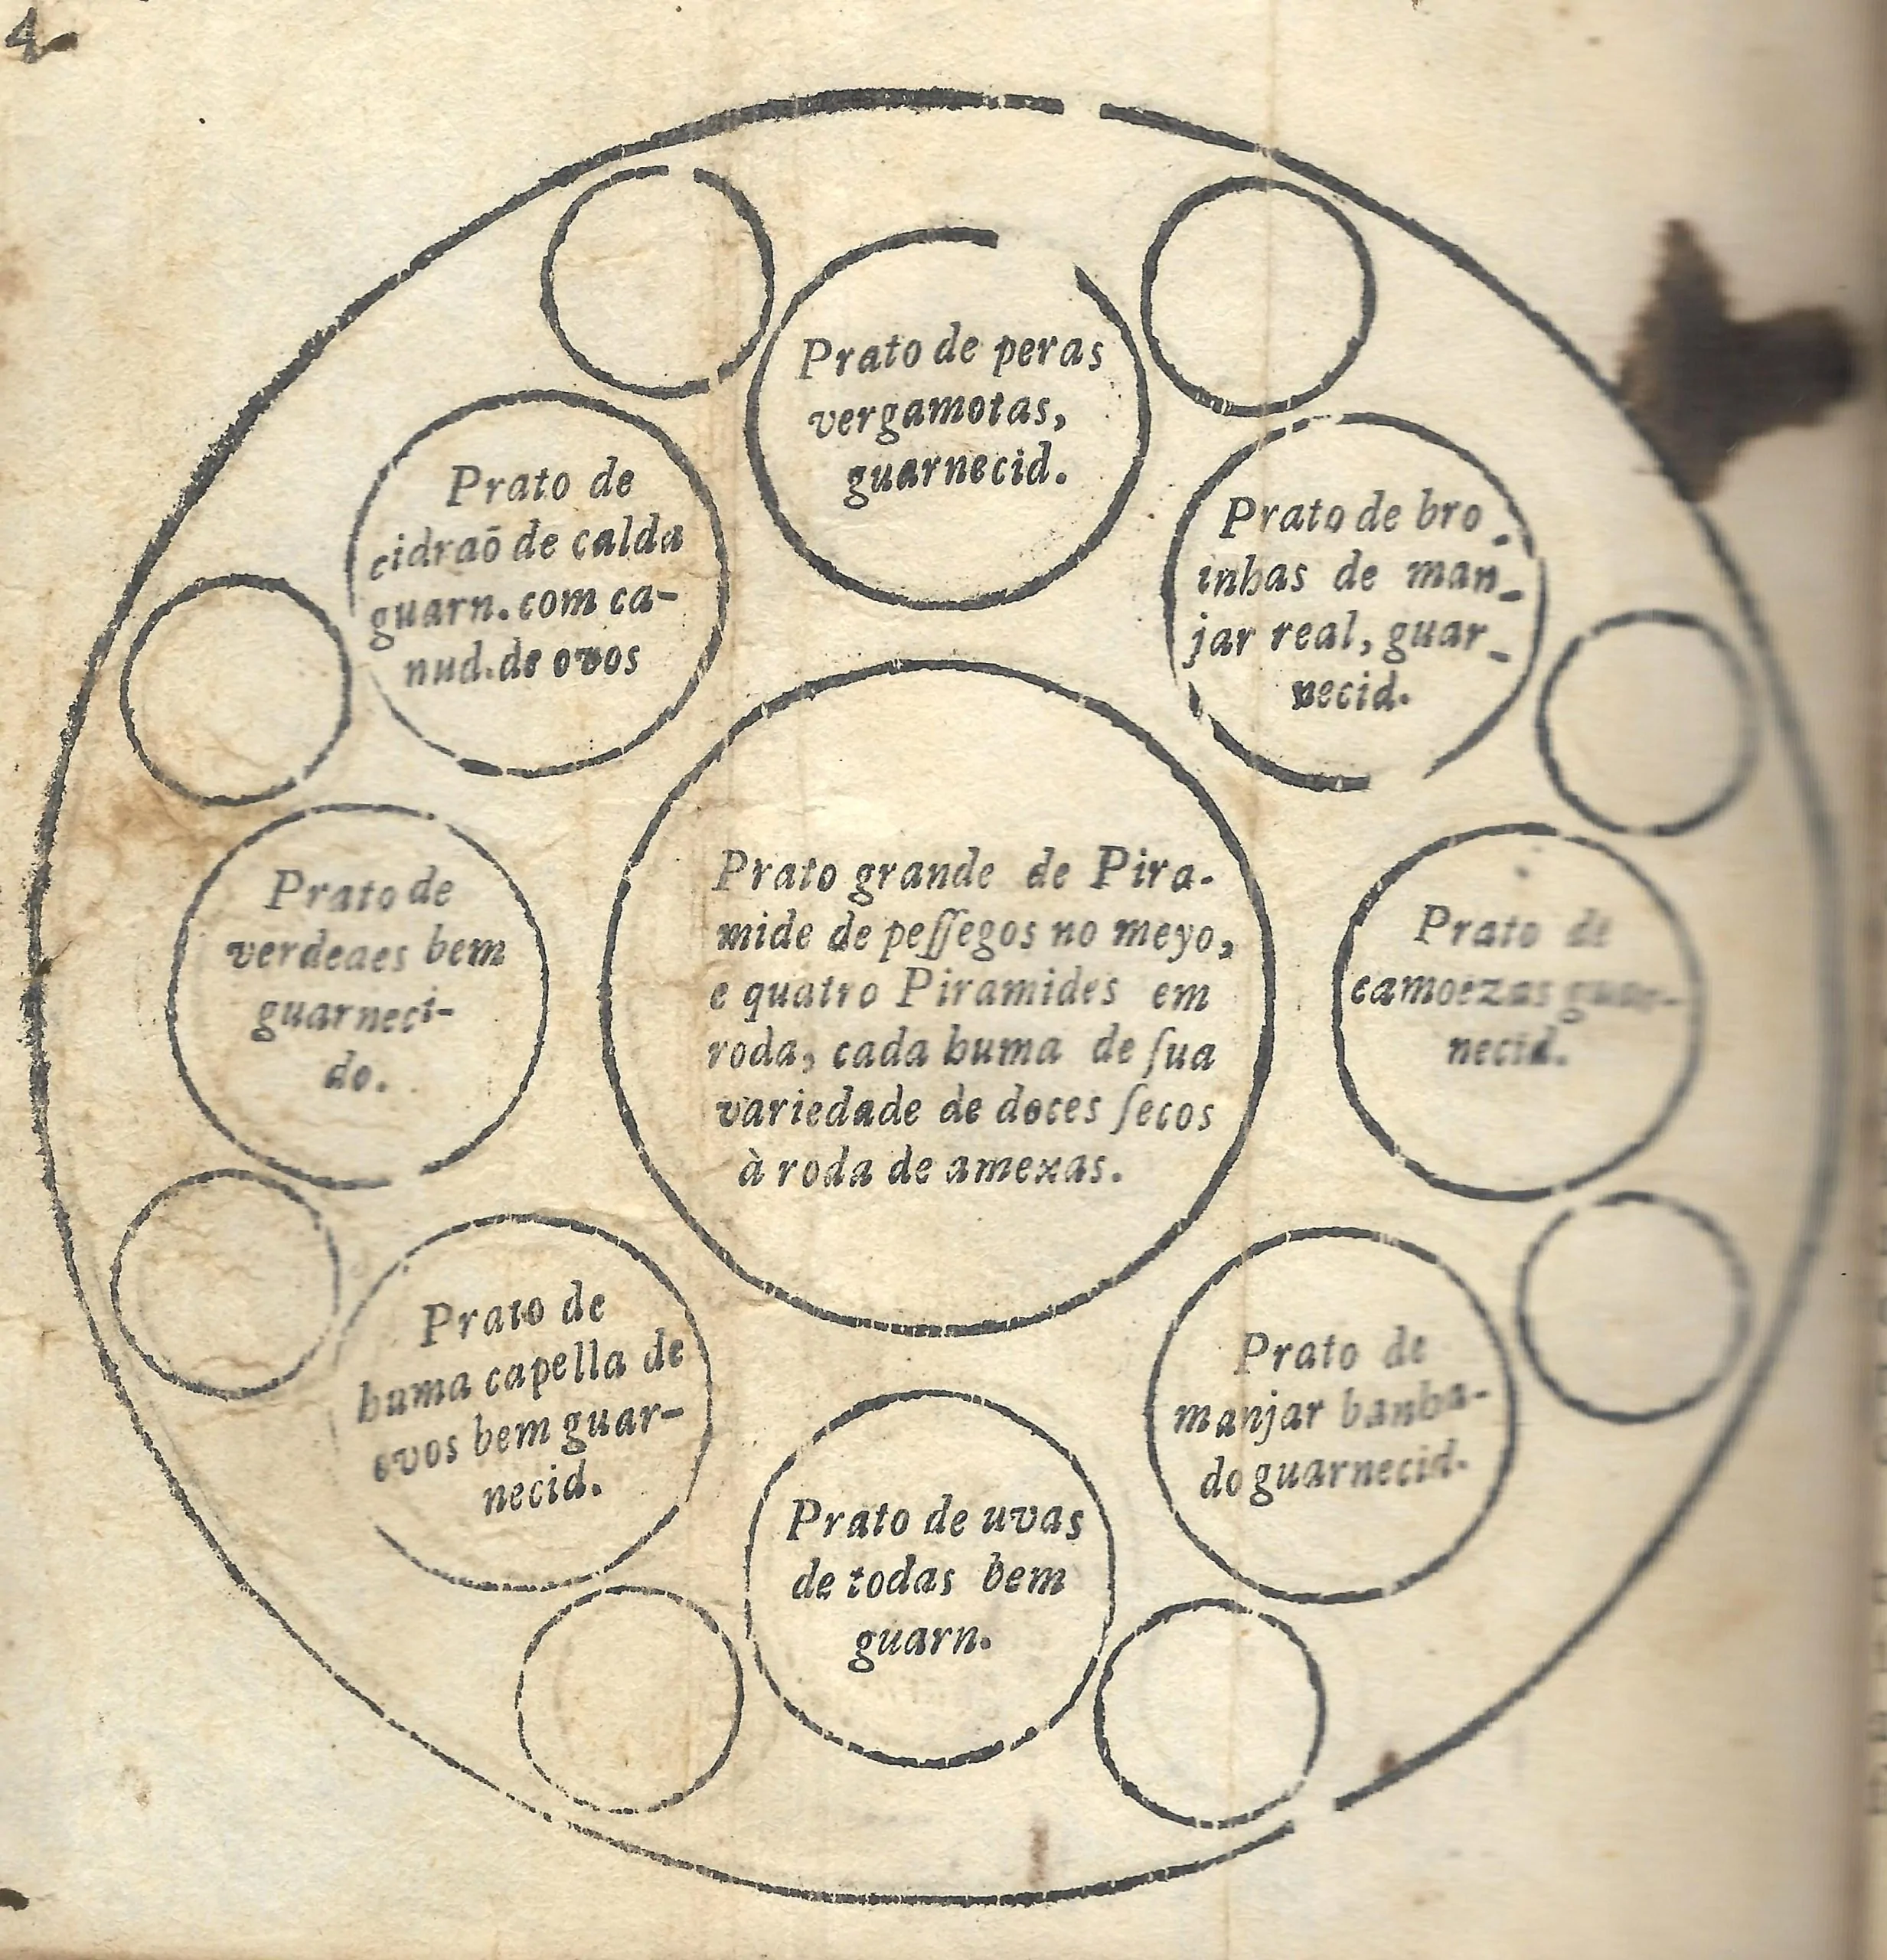 4
Prato de peras
vergamotas,
guarnecid.
Prato de
cidraõ de calda
guarn. com ca-
nud. de ovos
Prato de bro-
inhas de man-
jar real, guar-
necid.
Prato de
verdeaes bem
guarneci-
do.
Prato grande de Pira-
mide de peſſegos no meyo,
e quatro Piramides em
roda, cada huma de ſua
variedade de doces ſecos
à roda de amexas.
Prato de
camoezas guar-
necid.
Prato de
huma capella de
ovos bem guar-
necid.
Prato de
manjar banha-
do guarnecid.
Prato de uvas
de todas bem
guarn.